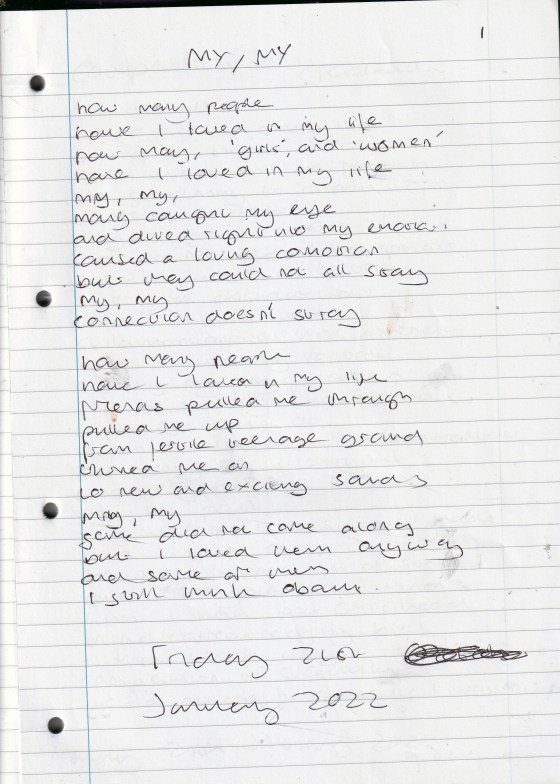 1
MY, MY
how many people
have I loved in my life
how many, 'girls', and 'women'
have I loved in my life
my, my,
many caught my eye
and dived right into my
caused a loving commotion
but they could not all stay
my, my
connection doesn't stray
how many people
have I loved in my life
friends pulled me through
pulled me up
from fertile teenage ground
turned me on
to new and exciting sounds
my, my
some did not come along
but I loved them anyway
and some of them
I still think about.
Friday 21st
January 2022